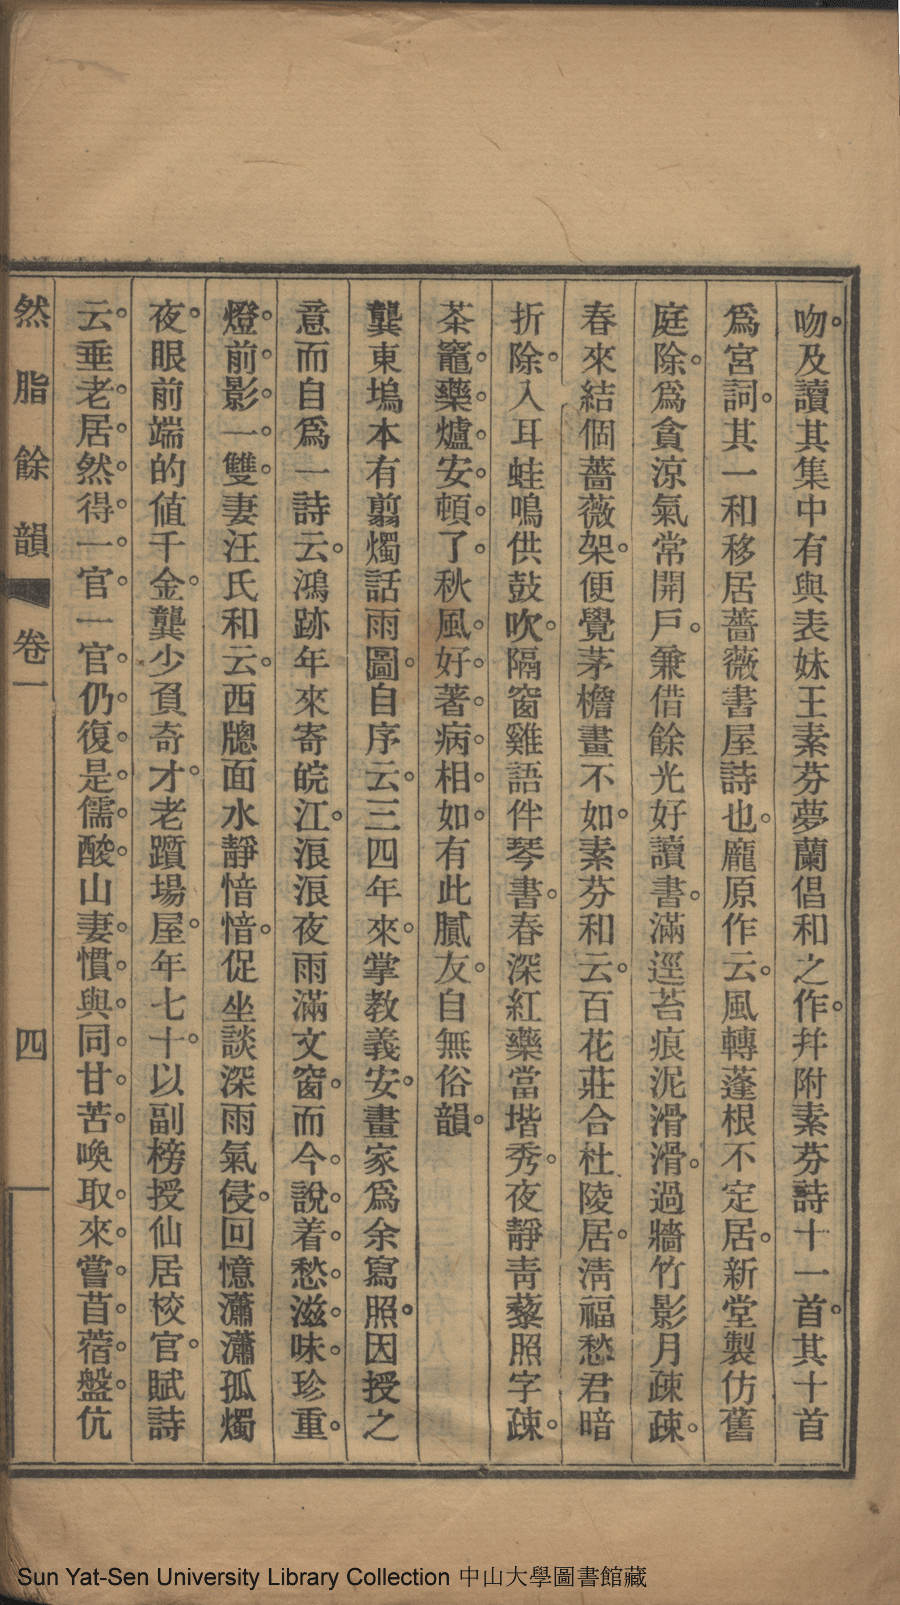 吻。及讀其集中有與表妹王素芬夢蘭倡和之作。幷附素芬詩十一首。其十首
爲宮詞。其一和移居薔薇書屋詩也。龐原作云。風轉蓬根不定居。新堂製仿舊
庭除。爲貪涼氣常開戶。兼借餘光好讀書。滿逕苔痕泥滑滑。過牆竹影月疎疎。
春來結個薔薇架。便覺茅檐畫不如。素芬和云。百花莊合杜陵居。淸福愁君暗
折除。入耳蛙鳴供鼓吹。隔窗雞語伴琴書。春深紅藥當堦秀。夜靜靑藜照字疎。
茶竈。藥。爐。安。頓。了。秋風。好。著。病。相。如。有此膩友。自無俗韻。
龔東塢本有翦燭話雨圖。自序云。三四年來。掌教義安。畫家爲余寫照。因授之
意而自爲一詩云。鴻跡年來寄皖江。浪浪夜雨滿文窗。而今。說。着。愁。滋。味。珍重。
燈。前。影。一。雙。妻汪氏和云。西牕面水靜愔愔。促坐談深雨氣侵。回憶瀟瀟孤燭
夜。眼前端的値千金。龔少負奇才。老躓場屋。年七十。以副榜授仙居校官。賦詩
云。垂老。居。然。得。一。官。一官。仍。復。是。儒。酸。山妻。慣。與。同。甘。苦。喚取。來。嘗。苜。蓿。盤。伉
然脂餘韻 卷一 四
Sun Yat-Sen University Library Collection 中山大學圖書館藏